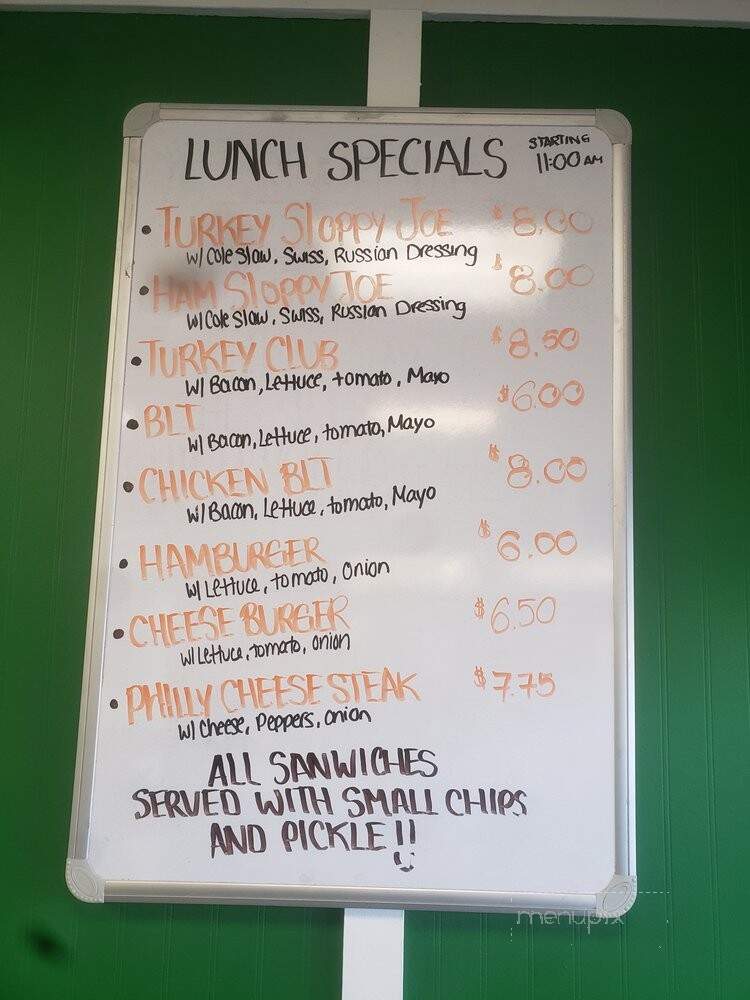 LUNCH SPECIALS STARTING 11:00 AM
• TURKEY Sloppy JOE $8.00
w/ Cole Slaw, Swiss, Russian Dressing
• HAM Sloppy JOE $8.00
w/ Cole Slaw, Swiss, Russian Dressing
• TURKEY CLUB $8.50
w/ Bacon, Lettuce, tomato, Mayo
• BLT $6.00
w/ Bacon, Lettuce, tomato, Mayo
• CHICKEN BLT $8.00
w/ Bacon, Lettuce, tomato, Mayo
• HAMBURGER $6.00
w/ Lettuce, tomato, onion
• CHEESE BURGER $6.50
w/ Lettuce, tomato, onion
• PHILLY CHEESE STEAK $7.75
w/ Cheese, Peppers, onion
ALL SANWICHES
SERVED WITH SMALL CHIPS
AND PICKLE!!
menupix